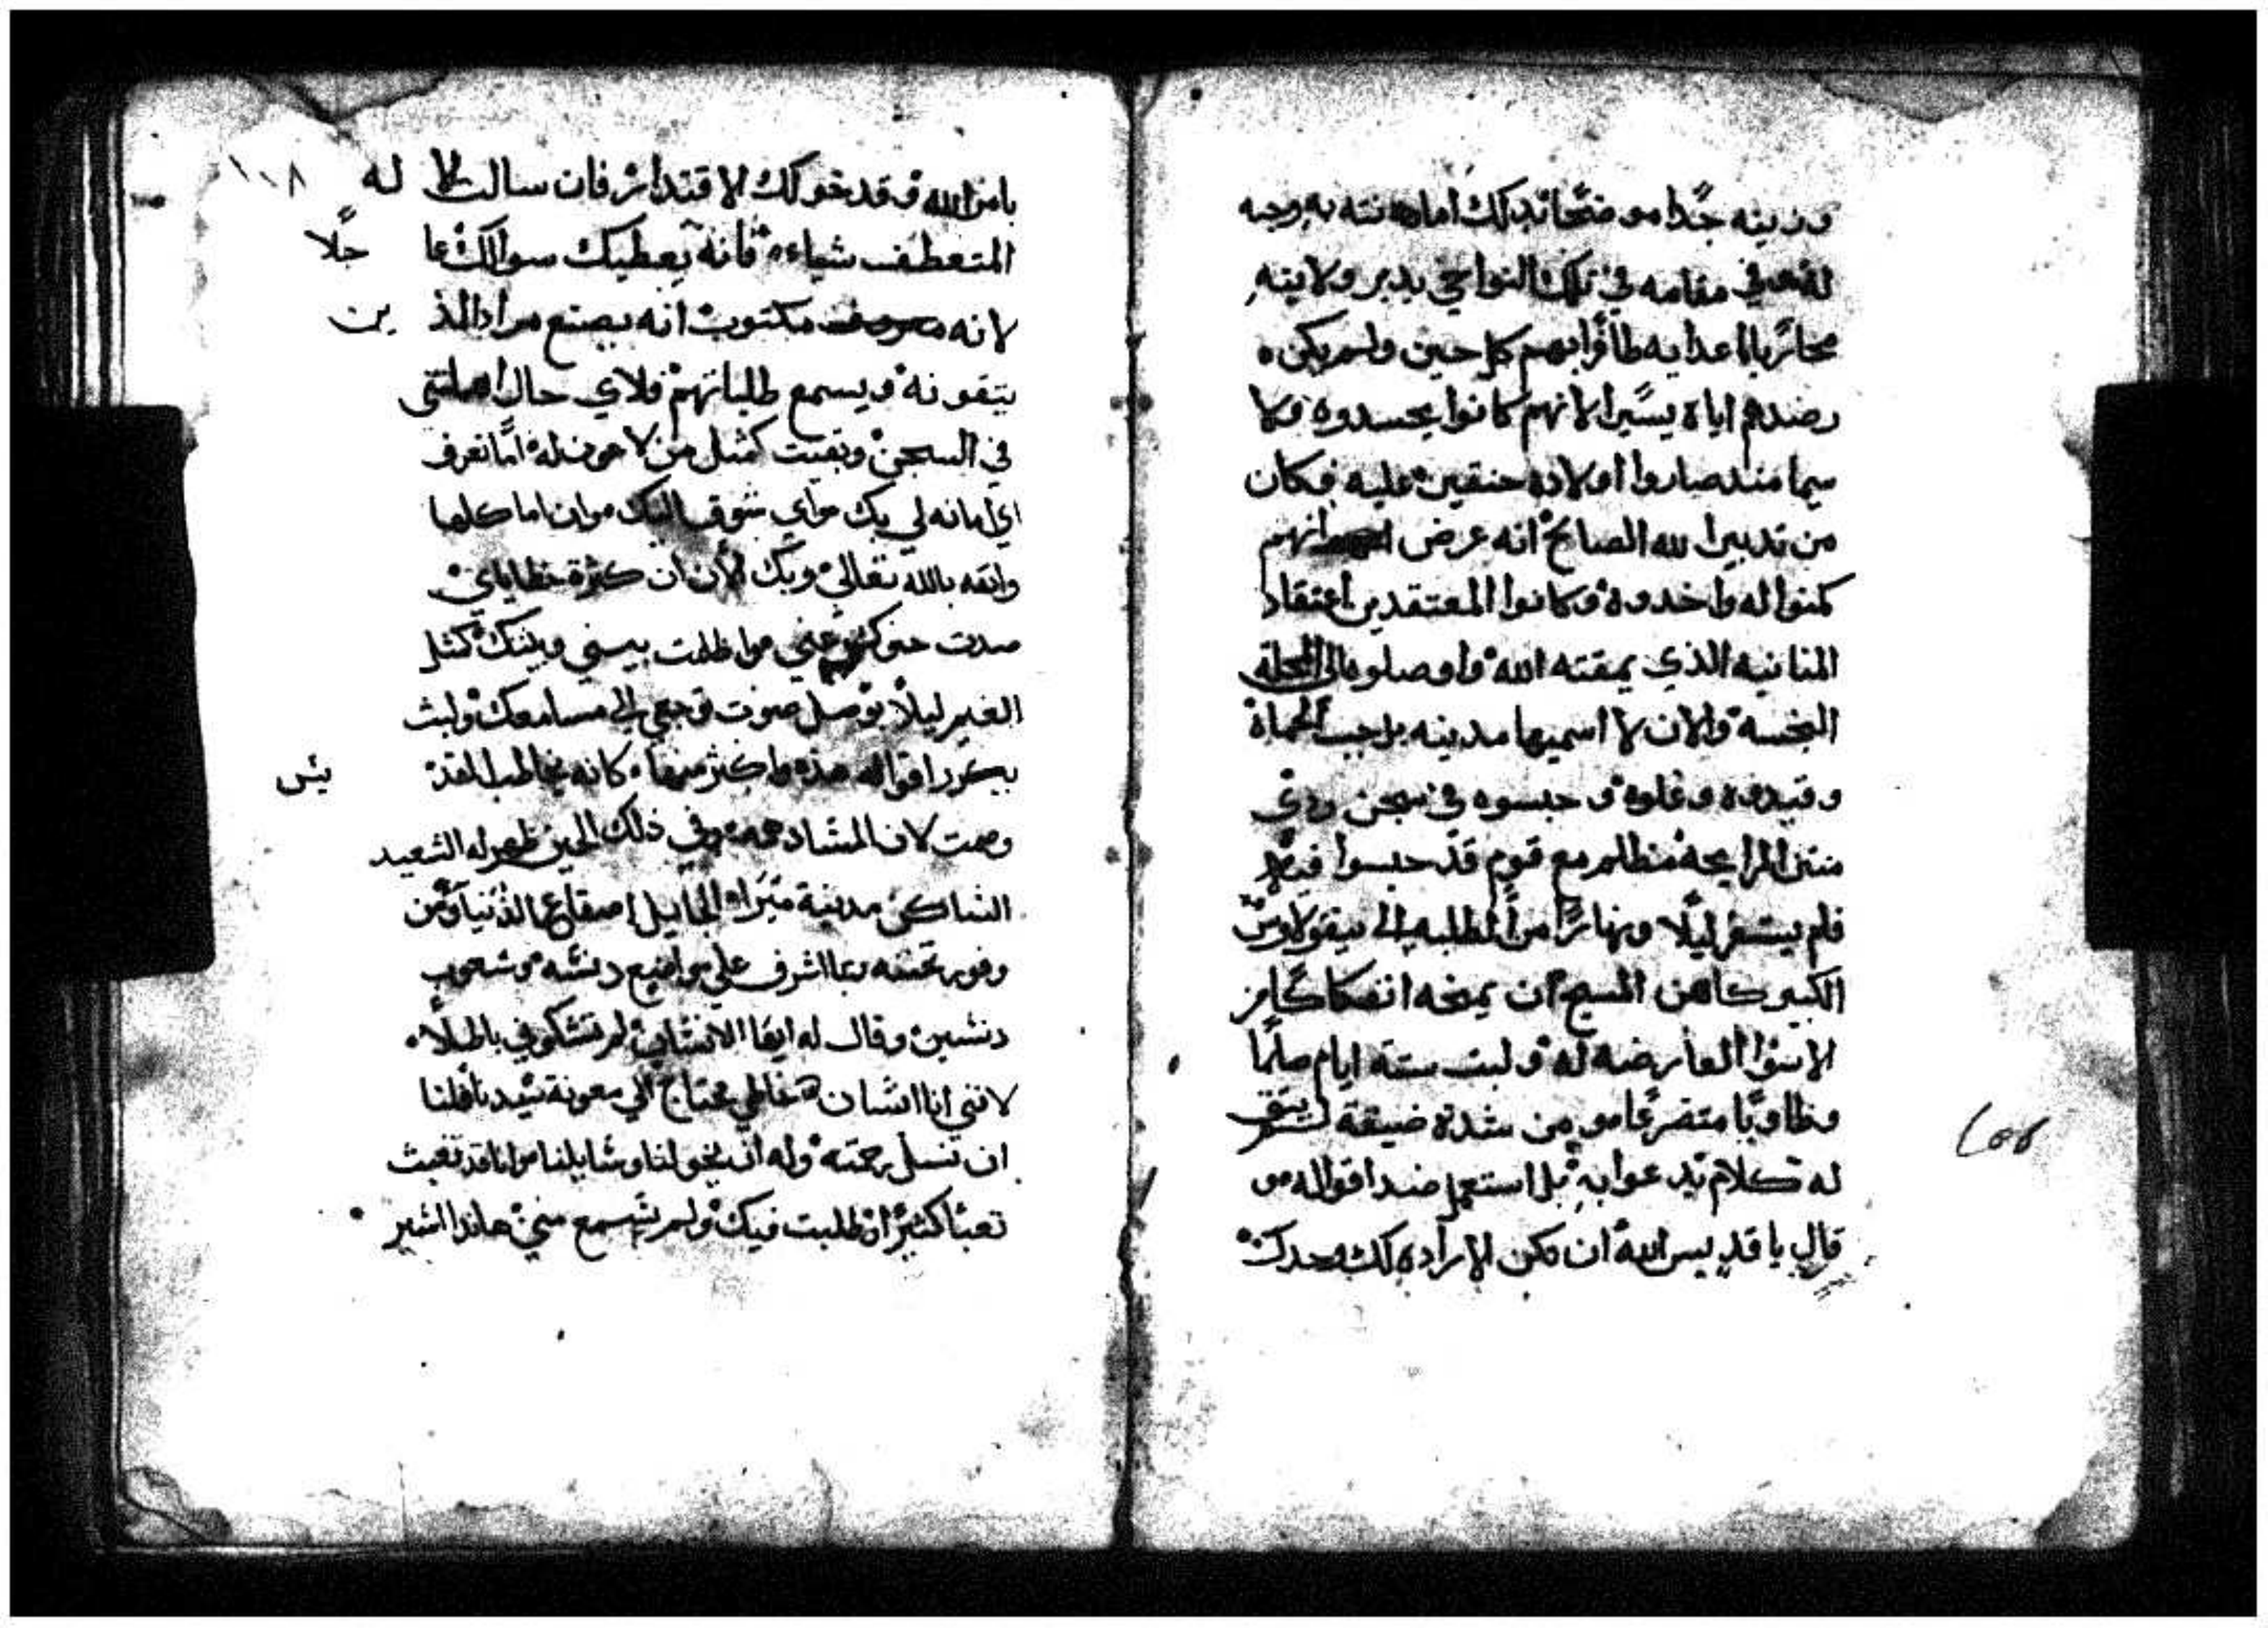 وزينه جدًا موضحًا بذلك امانته به وجبه
لله وفي مقامه في تلك النواحي يدبر ولايته
محاربًا اعدايه ظافرًا بهم كل حين ولم يكن
رضدهم اياه يسيرًا لانهم كانوا يحسدوه ولا
سيما منذ صاروا اولاده حنقين عليه فكان
من تدبير الله الصالح انه عرض انهم
كمنوا له واخدوه وكانوا المعتقدين اعتقاد
المنانيه الذي يمقته الله واوصلوه الى المحله
النجسه والان لا اسميها مدينه بل جب الحماة
وقيدوه وغلوه وحبسوه في سجن ردي
منتن الرايحه مظلم مع قوم قد حبسوا قبلا
فلم يستقر ليلًا ونهارًا من الطلبه الى نيقولاوس
الكبير كاهن المسيح ان يمنحه انفكاكًا من
الاسوا العارضه له ولبت ستة ايام صايمًا
وطاويًا متضرعًا ومن شدة ضيقة لم يبق
له كلام يدعوا به بل استعمل ضد اقواله و
قال يا قديس الله ان تكن الارادة لك وحدك
بامر الله وقد خولك الاقتدار فان سالت الا له ١٠٨
المتعطف شياء فانه يعطيك سوالك عاجلًا
لانه مكتوب انه يصنع مراد الذين
يتقونه ويسمع طلباتهم فلاي حال اهملتني
في السجن وبقيت كمثل من لا عون له اما تعرف
اي امانه لي بك واي شوق اليك وانا ما كلها
واثقه بالله تعالى وبك الان ان كثرة خطاياي
صدت حنوكم عني واظلمت بيني وبينك كمثل
الغير ليلًا يوصل صوت توجعي الى مسامعك ولبث
يكرر اقواله هذه واكثر منها كانه يخاطب القديس
وصمت لان المتشاد وفي ذلك الحين ظهر له السعيد
الساكن مدينة ميرا الجايل اصقاع الدنيا ومن
وفور تحننه ربما اشرف على مواضيع دنسه وشعوب
دنسين وقال له ايها الانسان لم تشكوني باطلًا
لانني انا انسان خاطي محتاج الى معونة سيدنا فلنا
ان نسل رحمته وله ان يخولنا وسايلنا وانا قد تعبت
تعبًا كثيرًا وطلبت فيك ولم تسمع مني هاندا اشير